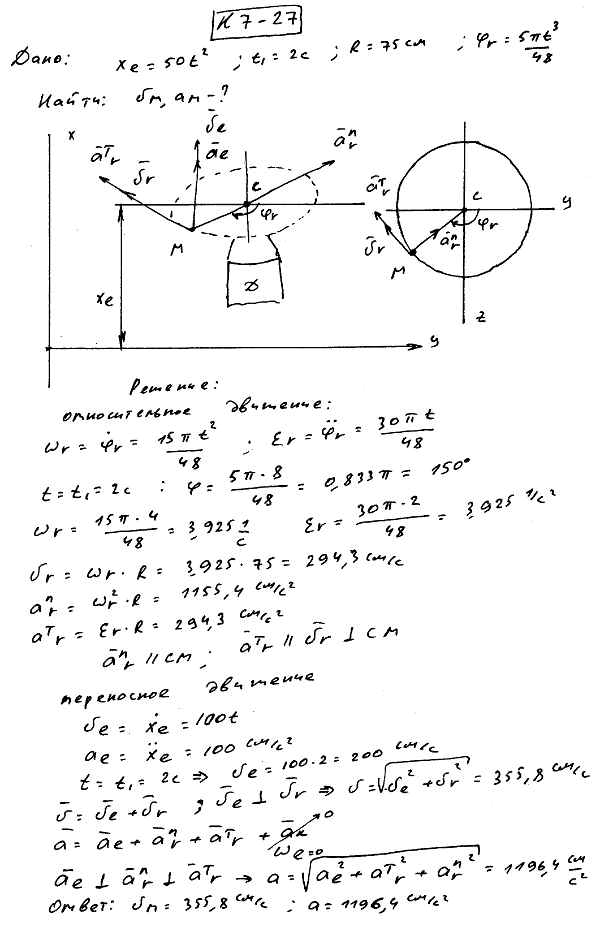 К7-27
Дано: xe = 50t² ; t₁ = 2c ; R = 75 см ; φr = 5πt³/48
Найти: υм, aм - ?
x
ῡe
āe
āᵀr
ῡr
āⁿr
c
φr
M
Д
xe
y
āᵀr
c
y
φr
ῡr
āⁿr
M
z
Решение:
относительное движение:
ωr = φ̇r = 15πt²/48 ; εr = φ̈r = 30πt/48
t = t₁ = 2c : φ = 5π·8/48 = 0,833π = 150°
ωr = 15π·4/48 = 3,925 1/c εr = 30π·2/48 = 3,925 1/c²
υr = ωr · R = 3,925 · 75 = 294,3 см/с
aⁿr = ωr² · R = 1155,4 см/с²
aᵀr = εr · R = 294,3 см/с²
āⁿr ∥ CM ; āᵀr ∥ ῡr ⊥ CM
переносное движение
υe = ẋe = 100t
ae = ẍe = 100 см/с²
t = t₁ = 2c ⇒ υe = 100·2 = 200 см/с
ῡ = ῡe + ῡr ; ῡe ⊥ ῡr ⇒ υ = √(υe² + υr²) = 355,8 см/с
ā = āe + āⁿr + āᵀr + āк 0
ωe=0
āe ⊥ āⁿr ⊥ āᵀr → a = √(ae² + aᵀr² + aⁿr²) = 1196,4 см/с²
Ответ: υм = 355,8 см/с ; a = 1196,4 см/с²